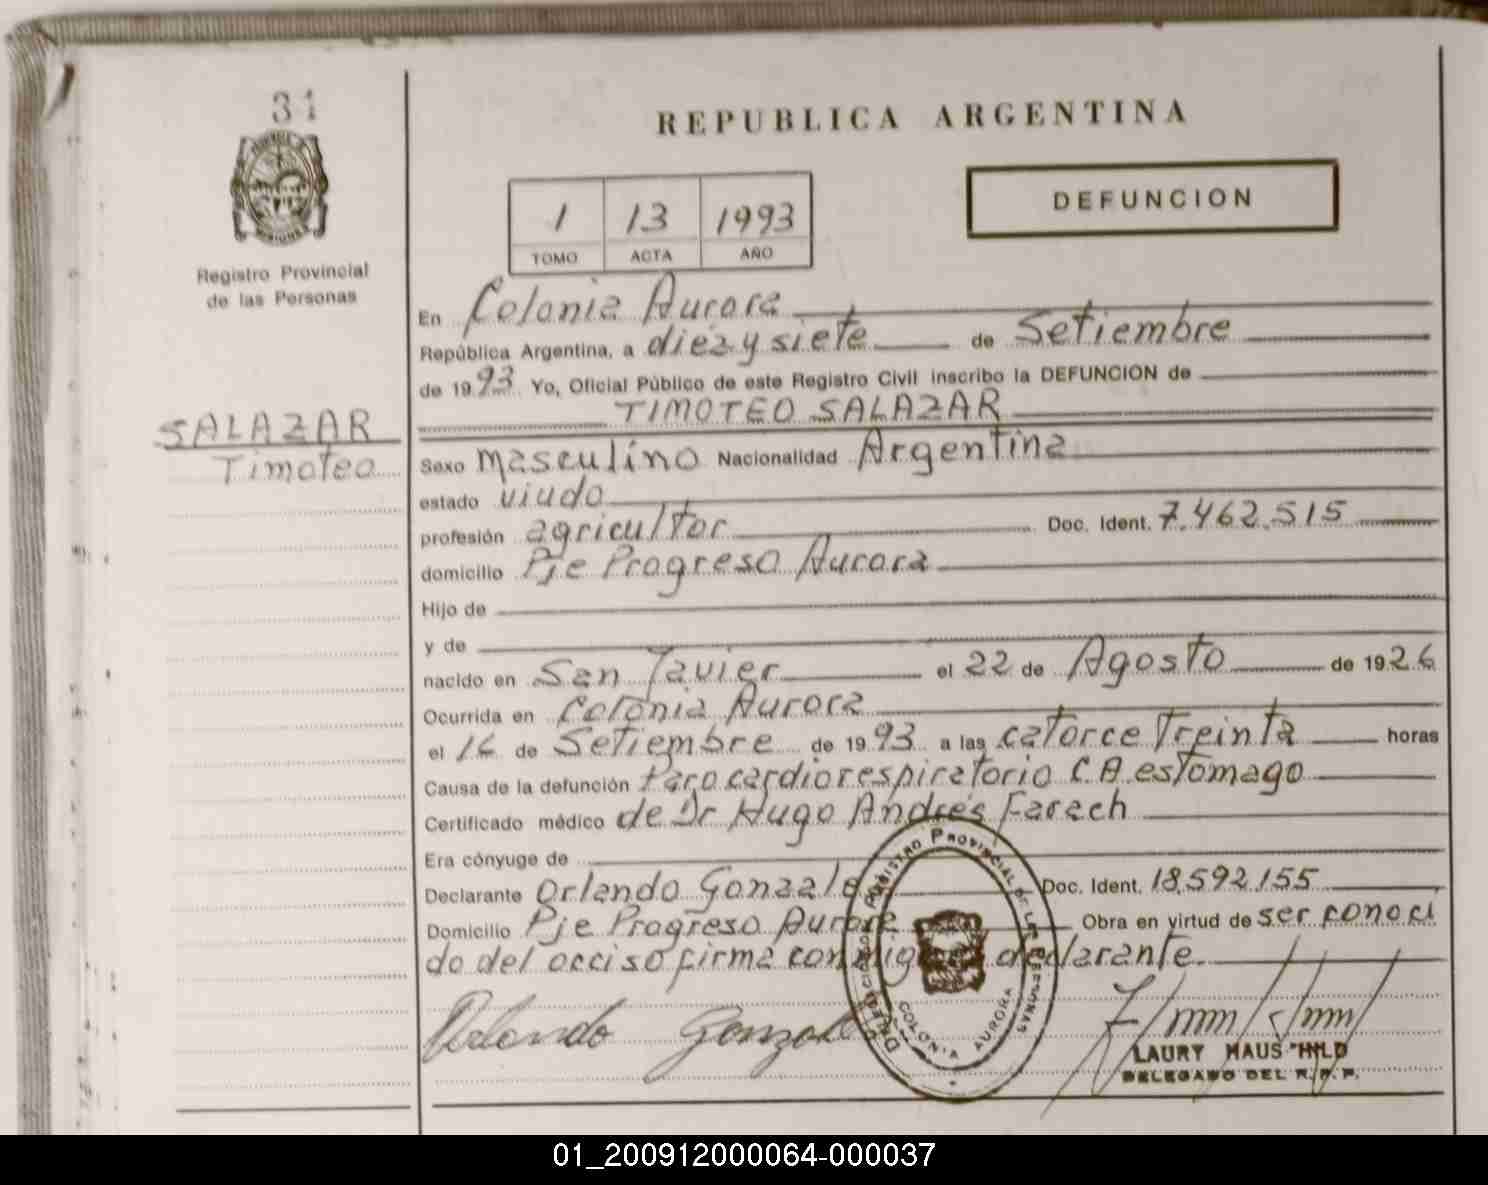 31
Registro Provincial
de las Personas
SALAZAR
Timoteo
REPUBLICA ARGENTINA
1 13 1993
TOMO ACTA AÑO
DEFUNCION
En Colonia Aurora
República Argentina, a diez y siete de Setiembre
de 1993 Yo, Oficial Público de este Registro Civil inscribo la DEFUNCION de
TIMOTEO SALAZAR
Sexo masculino Nacionalidad Argentina
estado viudo
profesión agricultor Doc. Ident. 7.462.515
domicilio Pje Progreso Aurora
Hijo de
y de
nacido en San Javier el 22 de Agosto de 1926
Ocurrida en Colonia Aurora
el 16 de Setiembre de 1993 a las catorce Treinta horas
Causa de la defunción Paro cardiorespiratorio C.A. estomago
Certificado médico de Dr Hugo Andrés Farech
Era cónyuge de
Declarante Orlando Gonzale Doc. Ident. 18.592.155
Domicilio Pje Progreso Aurora Obra en virtud de ser conoci
do del occiso firma conmigo el declarante.
Orlando Gonzale
REGISTRO PROVINCIAL DE LAS PERSONAS
COLONIA AURORA
LAURY HAUS HILD
DELEGADO DEL R.P.P.
01_200912000064-000037